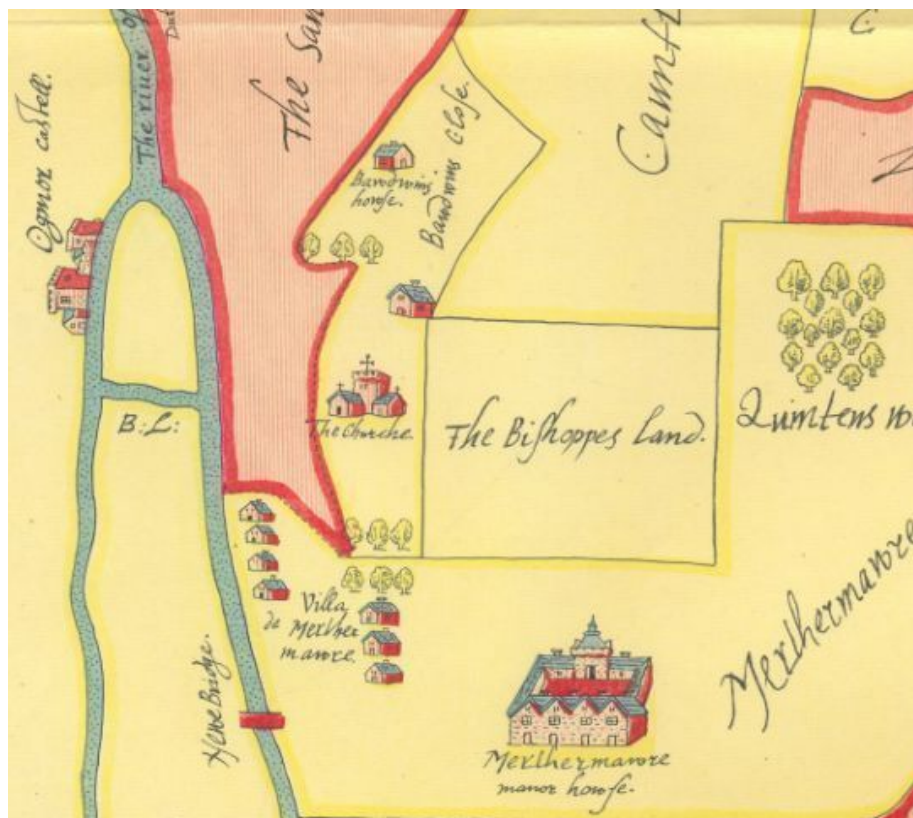 Ogmor castell.
The river of
The San
Bawdwins
howse.
Bawdwins Close.
B: L:
The Churche.
The Bishoppes land.
Quintens wo
Villa
de Merther
mawre.
Newe Bridge.
Merthermawre
manor howse.
Merthermawre